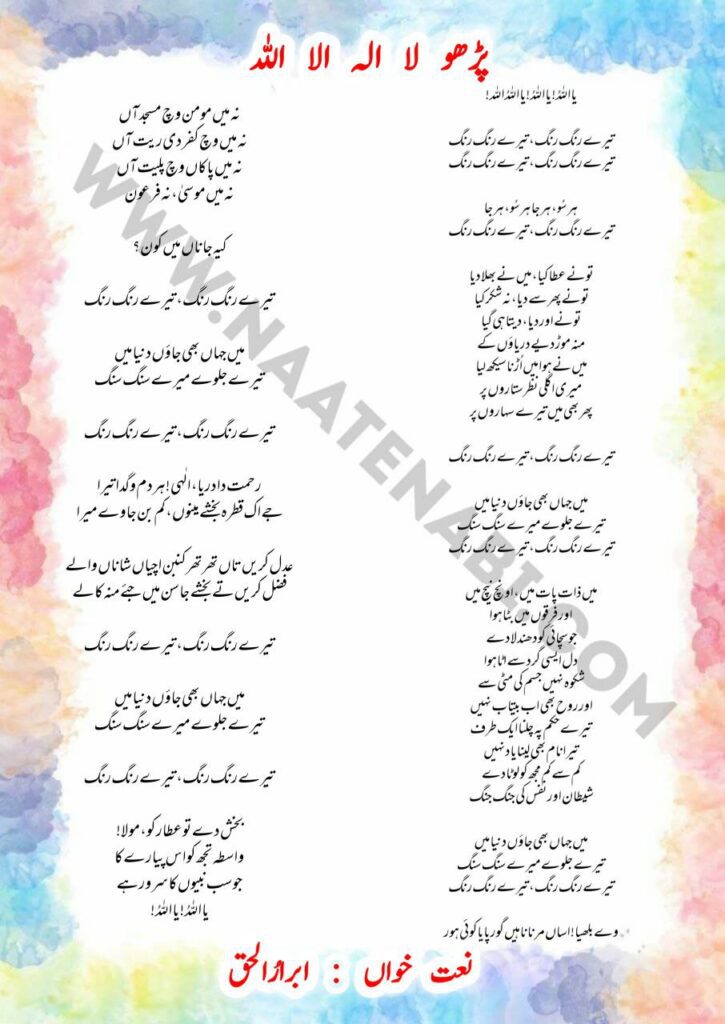 پڑھو لا الہ الا اللہ
یا اللہُ! یا اللہُ! یا اللہُ اللہ!
تیرے رنگ رنگ، تیرے رنگ رنگ
تیرے رنگ رنگ، تیرے رنگ رنگ
ہر سُو، ہر جا ہر سُو، ہر جا
تیرے رنگ رنگ، تیرے رنگ رنگ
تو نے عطا کیا، میں نے بھلا دیا
تو نے پھر سے دیا، نہ شکر کیا
تو نے اور دیا، دیتا ہی گیا
منہ موڑ دیے دریاؤں کے
میں نے ہوا میں اُڑنا سیکھ لیا
میری اگلی نظر ستاروں پر
پھر بھی میں تیرے سہاروں پر
تیرے رنگ رنگ، تیرے رنگ رنگ
میں جہاں بھی جاؤں دنیا میں
تیرے جلوے میرے سنگ سنگ
تیرے رنگ رنگ، تیرے رنگ رنگ
میں ذات پات میں، اونچ نیچ میں
اور فرقوں میں بٹا ہوا
جو سچائی کو دھندلا دے
دل ایسی گرد سے اٹا ہوا
شکوہ نہیں جسم کی مٹی سے
اور روح بھی اب بیتاب نہیں
تیرے حکم پہ چلنا ایک طرف
تیرا نام بھی لینا یاد نہیں
کم سے کم مجھ کو لوٹا دے
شیطان اور نفس کی جنگ جنگ
میں جہاں بھی جاؤں دنیا میں
تیرے جلوے میرے سنگ سنگ
تیرے رنگ رنگ، تیرے رنگ رنگ
وے بلھیا! اساں مرنا ناہیں گور پایا کوئی ہور
نہ میں مومن وچ مسجد آں
نہ میں وچ کفر دی ریت آں
نہ میں پاکاں وچ پلیت آں
نہ میں موسیٰ، نہ فرعون
کیہ جاناں میں کون؟
تیرے رنگ رنگ، تیرے رنگ رنگ
میں جہاں بھی جاؤں دنیا میں
تیرے جلوے میرے سنگ سنگ
تیرے رنگ رنگ، تیرے رنگ رنگ
رحمت دا دریا، الٰہی! ہر دم وگدا تیرا
جے اک قطرہ بخشے مینوں، کم بن جاوے میرا
عدل کریں تاں تھر تھر کنبن اچیاں شاناں والے
فضل کریں تے بخشے جاسن میں جئے منہ کالے
تیرے رنگ رنگ، تیرے رنگ رنگ
میں جہاں بھی جاؤں دنیا میں
تیرے جلوے میرے سنگ سنگ
تیرے رنگ رنگ، تیرے رنگ رنگ
بخش دے تو عطار کو، مولا!
واسطہ تجھ کو اس پیارے کا
جو سب نبیوں کا سرور ہے
یا اللہُ! یا اللہُ!
نعت خواں : ابرارُالحق
WWW.NAATENABI.COM